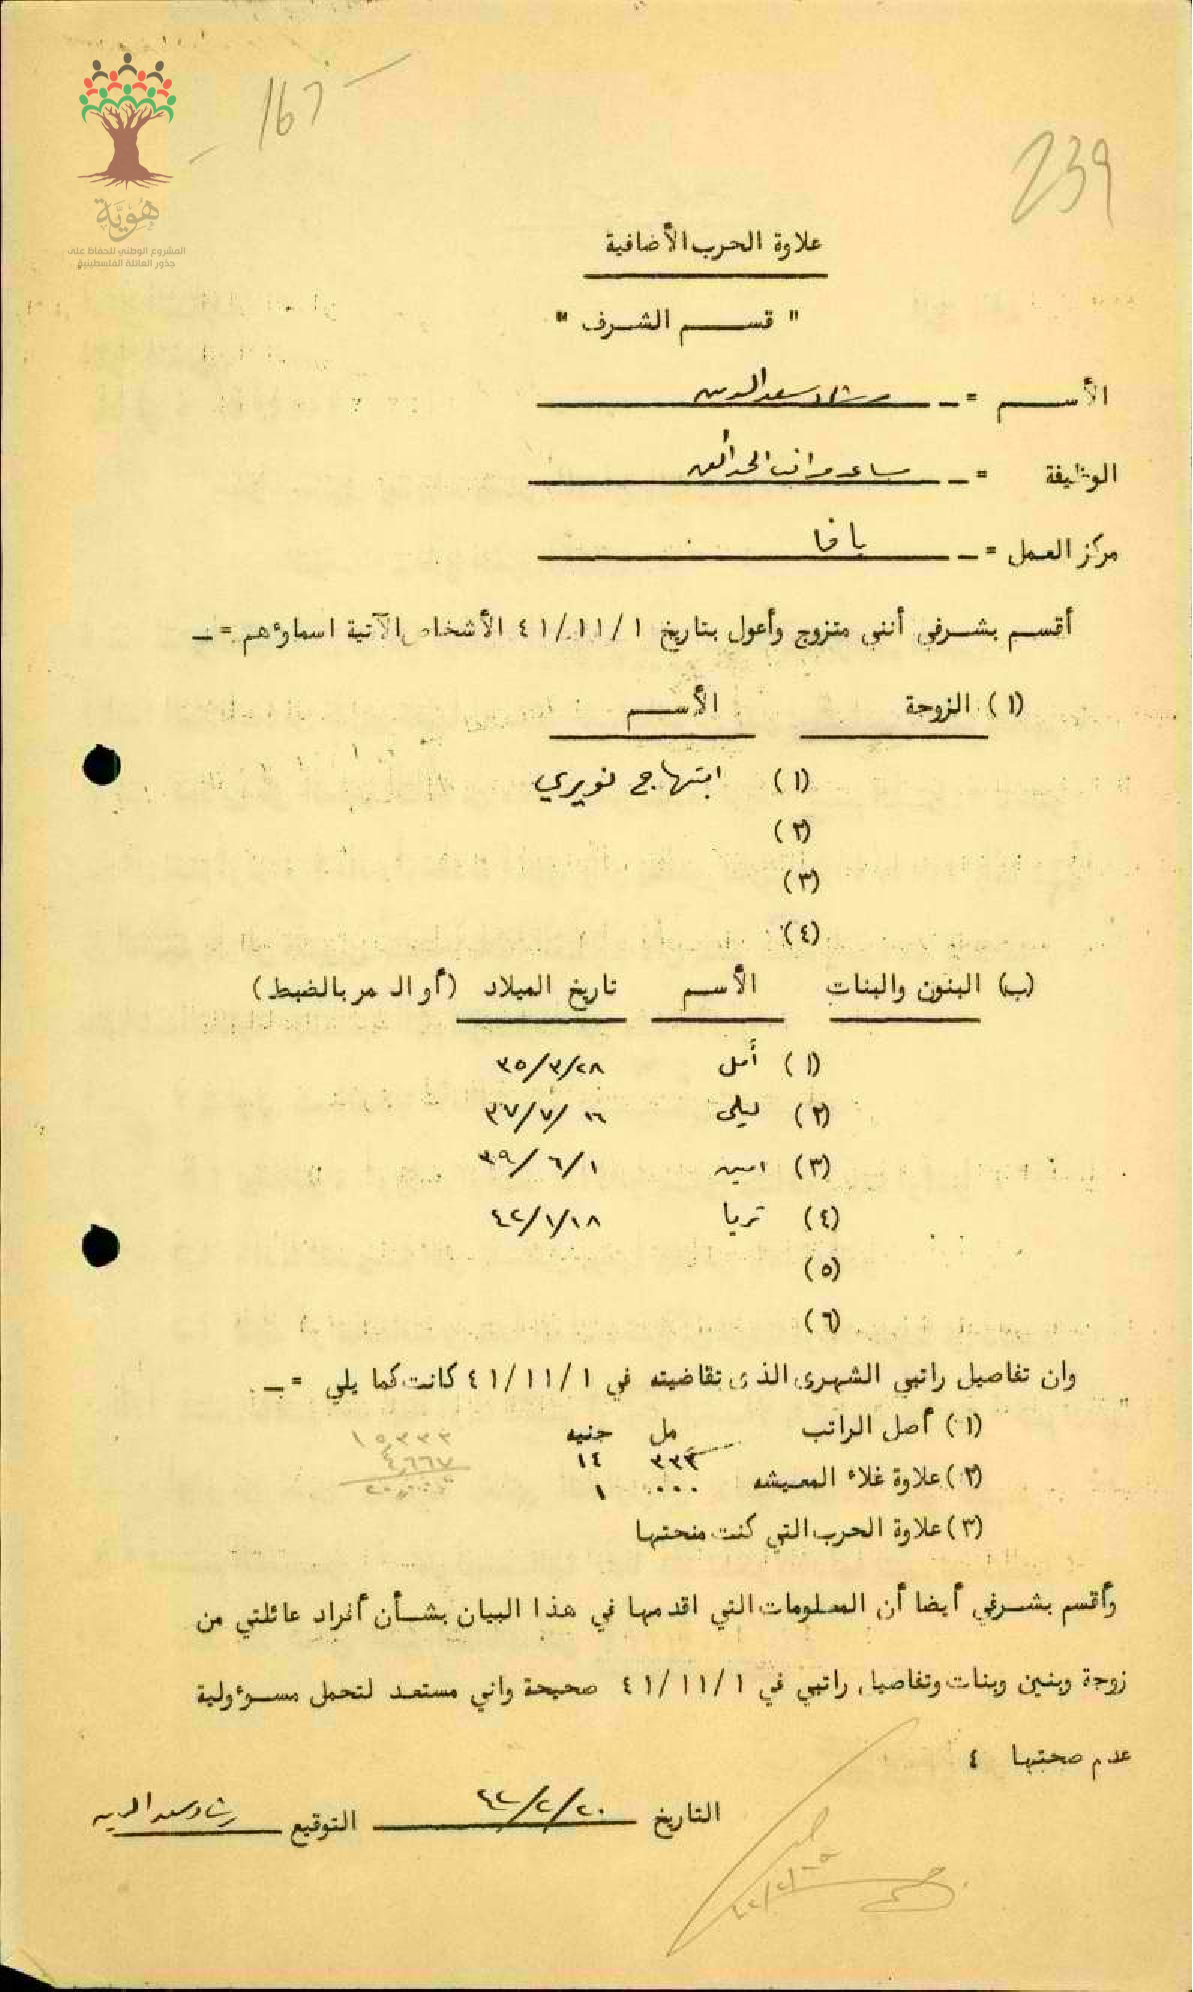 167
239
هوية
المشروع الوطني للحفاظ على
جذور العائلة الفلسطينية
علاوة الحرب الأضافية
" قسم الشرف "
الأسم =ـ رشاد سعد الدين
الوظيفة =ـ مساعد مراقب الحدائق
مركز العمل =ـ يافا
أقسم بشرفي أنني متزوج وأعول بتاريخ ٤١/١١/١ الأشخاص الآتية اسماؤهم =ـ
(١) الزوجة الأسم
(١) ابتهاج نويري
(٢)
(٣)
(٤)
(ب) البنون والبنات الأسم تاريخ الميلاد (أو العمر بالضبط)
(١) أمل ٣٥/٣/٢٨
(٢) ليلى ٣٧/٧/١٦
(٣) امين ٣٩/٦/١
(٤) ثريا ٤٢/١/١٨
(٥)
(٦)
وان تفاصيل راتبي الشهرى الذى تقاضيته في ٤١/١١/١ كانت كما يلي =ـ
(١) أصل الراتب مل جنيه
٣٣٣ ١٤
١٥,٣٣٣
٤,٦٦٧
(٢) علاوة غلاء المعيشه ٠٠٠ ١
٢٠,٠٠٠
(٣) علاوة الحرب التي كنت منحتها
وأقسم بشرفي أيضا أن المعلومات التي اقدمها في هذا البيان بشأن أفراد عائلتي من
زوجة وبنين وبنات وتفاصيل راتبي في ٤١/١١/١ صحيحة واني مستعد لتحمل مسؤولية
عدم صحتها ٤
التاريخ ٤٢/٢/٢٠ التوقيع رشاد سعد الدين